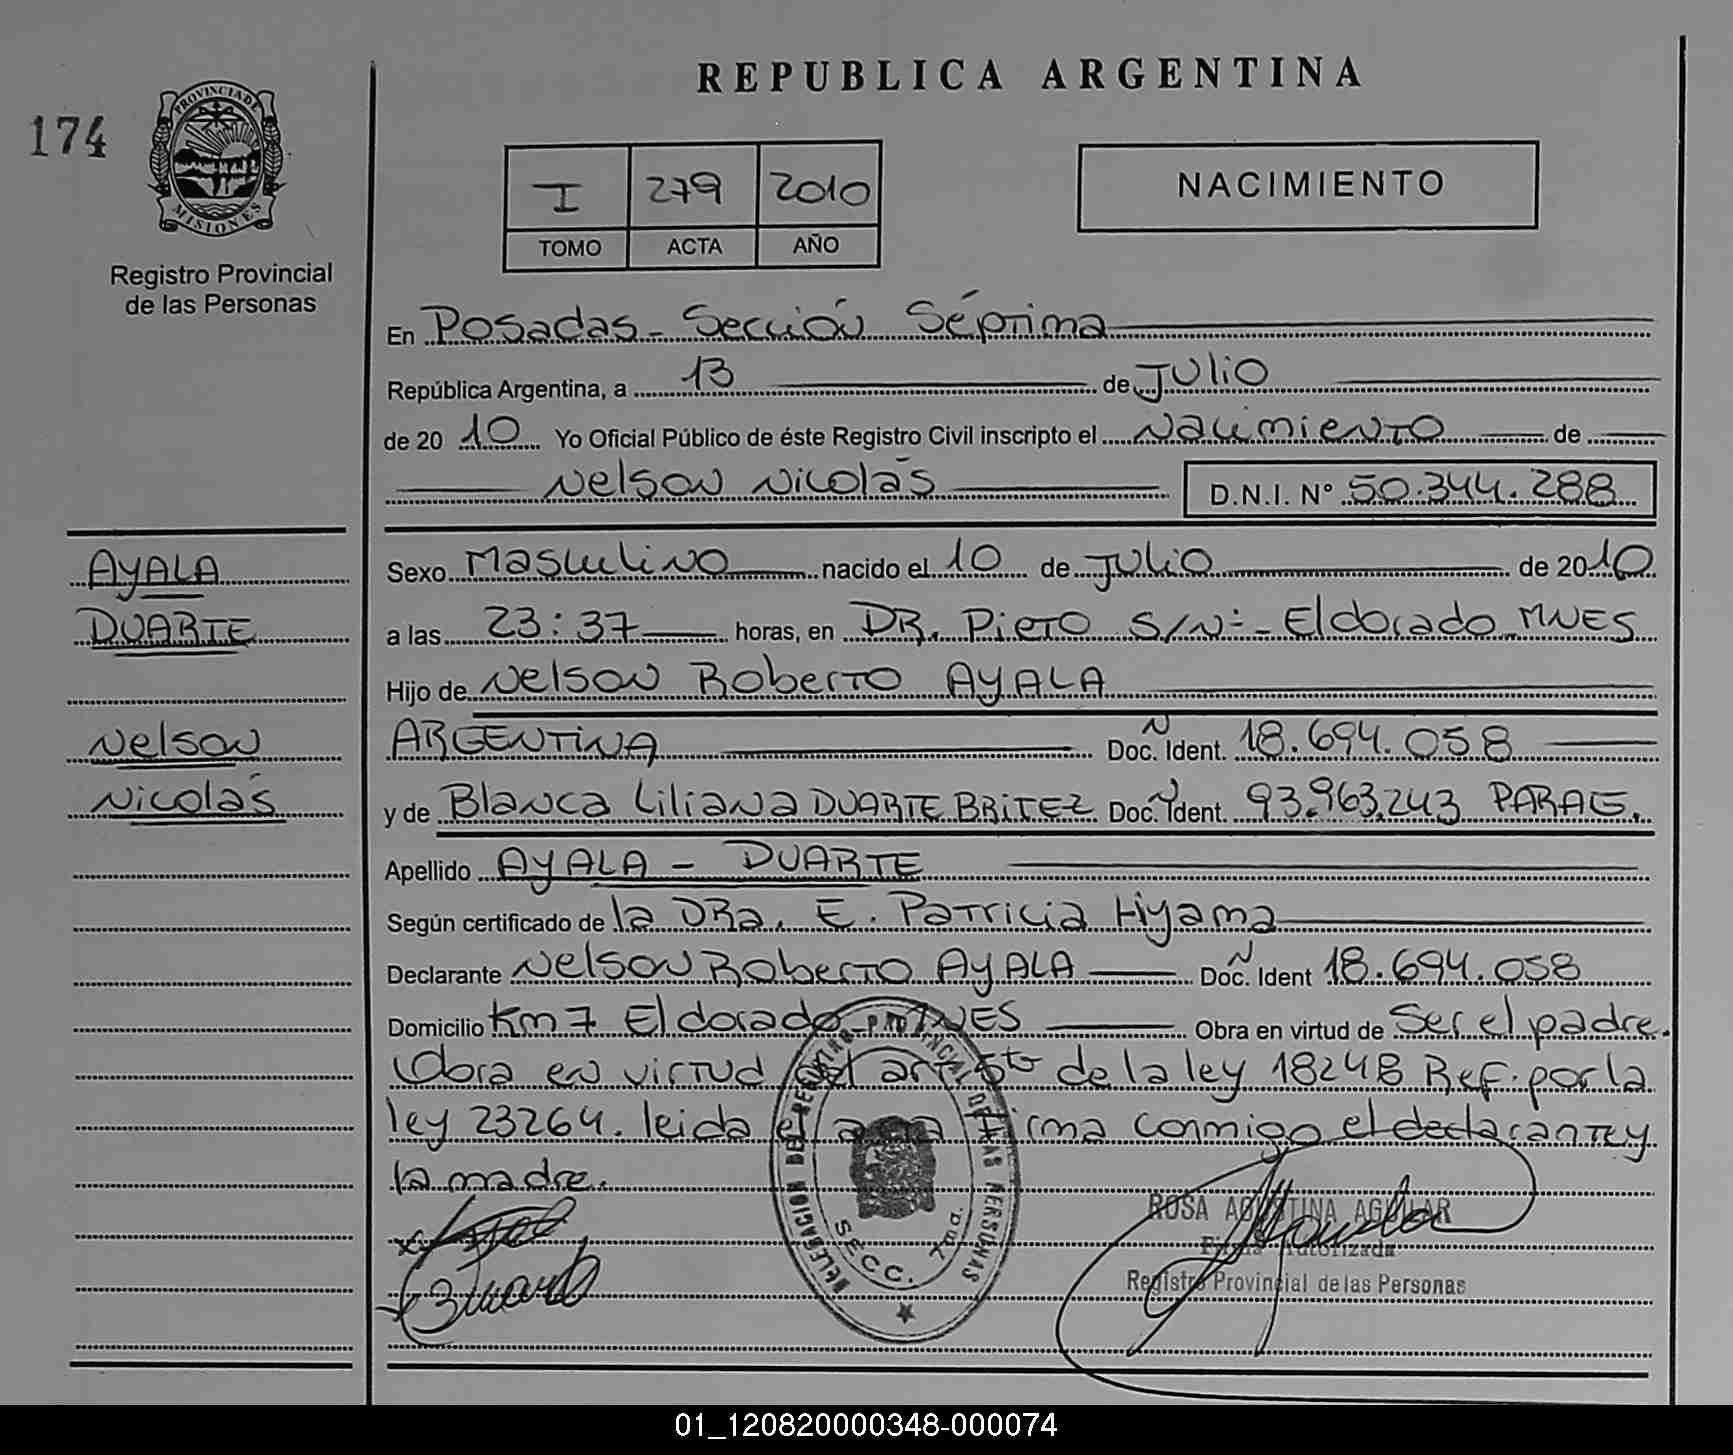 REPUBLICA ARGENTINA
174
PROVINCIA DE MISIONES
Registro Provincial
de las Personas
I 279 2010
TOMO ACTA AÑO
NACIMIENTO
En Posadas - Sección Séptima
República Argentina, a 13 de Julio
de 2010 Yo Oficial Público de éste Registro Civil inscripto el Nacimiento de
Nelson Nicolás D.N.I. N° 50.344.288
AYALA
DUARTE
Nelson
Nicolás
Sexo Masculino nacido el 10 de Julio de 2010
a las 23:37 horas, en DR. Pieto S/Nº - Eldorado MNES
Hijo de Nelson Roberto AYALA
ARGENTINA Doc. N Ident. 18.694.058
y de Blanca Liliana DUARTE BRITEZ Doc. N Ident. 93.963.243 PARAG.
Apellido AYALA - DUARTE
Según certificado de la DRa. E. Patricia Hiyama
Declarante Nelson Roberto AYALA Doc. N Ident 18.694.058
Domicilio Km 7 Eldorado MNES Obra en virtud de Ser el padre.
Obra en virtud del art 5to de la ley 18248 Ref. por la
ley 23264. leida el acta firma conmigo el declarante y
la madre.
DELEGACION DEL REGISTRO PROVINCIAL DE LAS PERSONAS
SECC. 7ma.
ROSA AGUSTINA AGUILAR
Firma Autorizada
Registro Provincial de las Personas
01_120820000348-000074